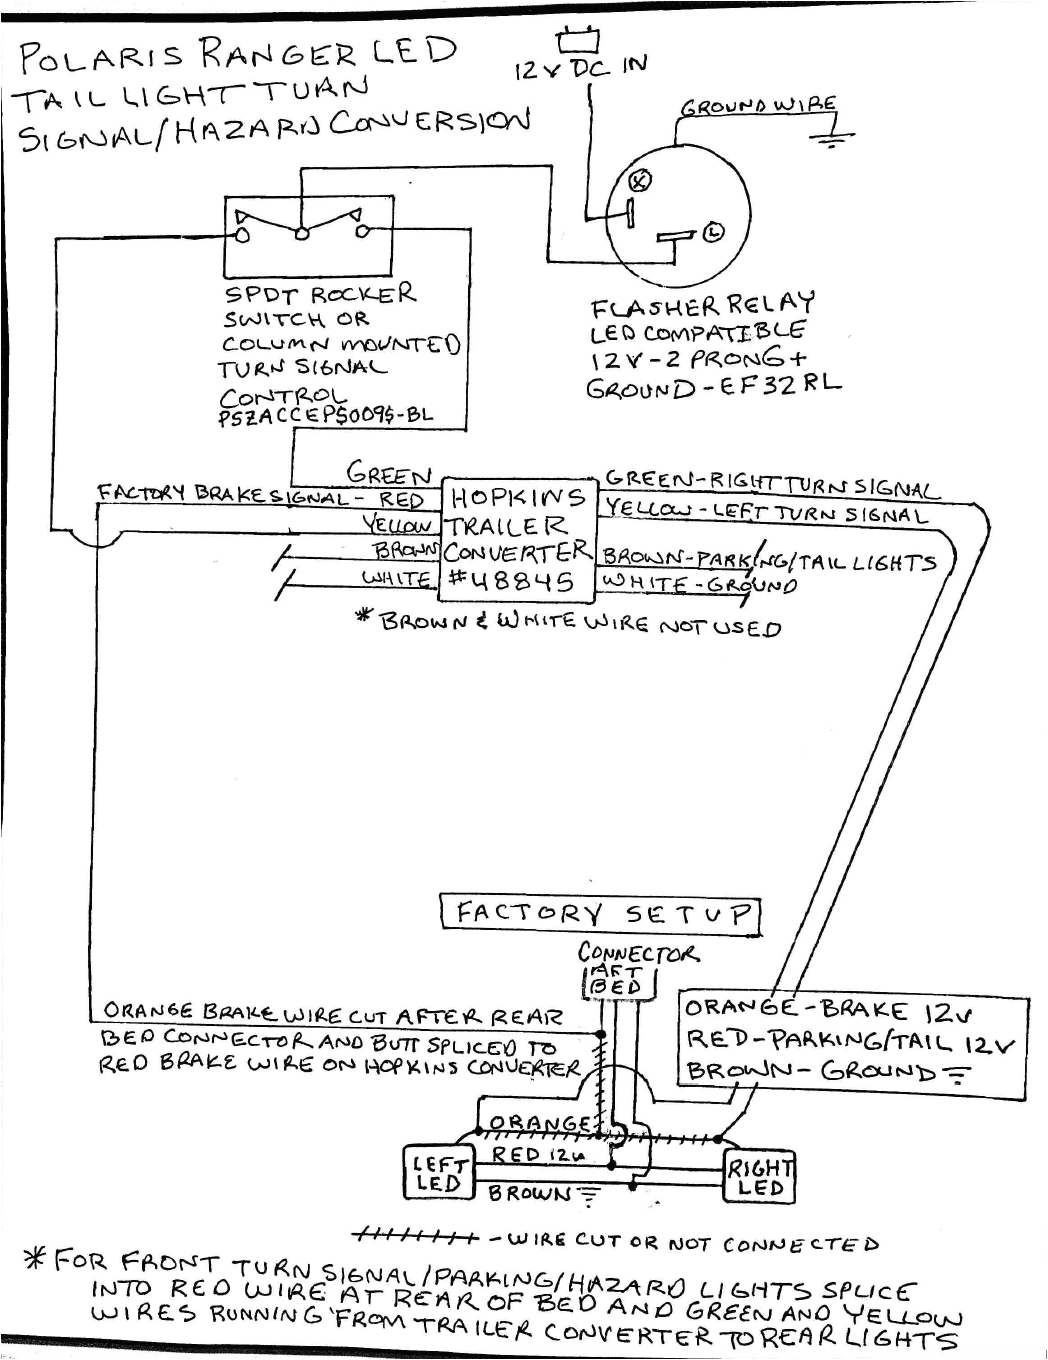 POLARIS RANGER LED
TAIL LIGHT TURN
SIGNAL/HAZARD CONVERSION
12V DC IN
GROUND WIRE
X
L
SPDT ROCKER
SWITCH OR
COLUMN MOUNTED
TURN SIGNAL
CONTROL
PSZACCEPS009S-BL
FLASHER RELAY
LED COMPATIBLE
12V-2 PRONG +
GROUND-EF32RL
GREEN
FACTORY BRAKE SIGNAL - RED
YELLOW
BROWN
WHITE
HOPKINS
TRAILER
CONVERTER
#48845
GREEN-RIGHT TURN SIGNAL
YELLOW-LEFT TURN SIGNAL
BROWN-PARKING/TAIL LIGHTS
WHITE-GROUND
* BROWN & WHITE WIRE NOT USED
FACTORY SETUP
CONNECTOR
AFT
BED
ORANGE-BRAKE 12V
RED-PARKING/TAIL 12V
BROWN-GROUND
ORANGE BRAKE WIRE CUT AFTER REAR
BED CONNECTOR AND BUTT SPLICED TO
RED BRAKE WIRE ON HOPKINS CONVERTER
ORANGE
RED 12V
BROWN
LEFT
LED
RIGHT
LED
- WIRE CUT OR NOT CONNECTED
* FOR FRONT TURN SIGNAL/PARKING/HAZARD LIGHTS SPLICE
INTO RED WIRE AT REAR OF BED AND GREEN AND YELLOW
WIRES RUNNING FROM TRAILER CONVERTER TO REAR LIGHTS